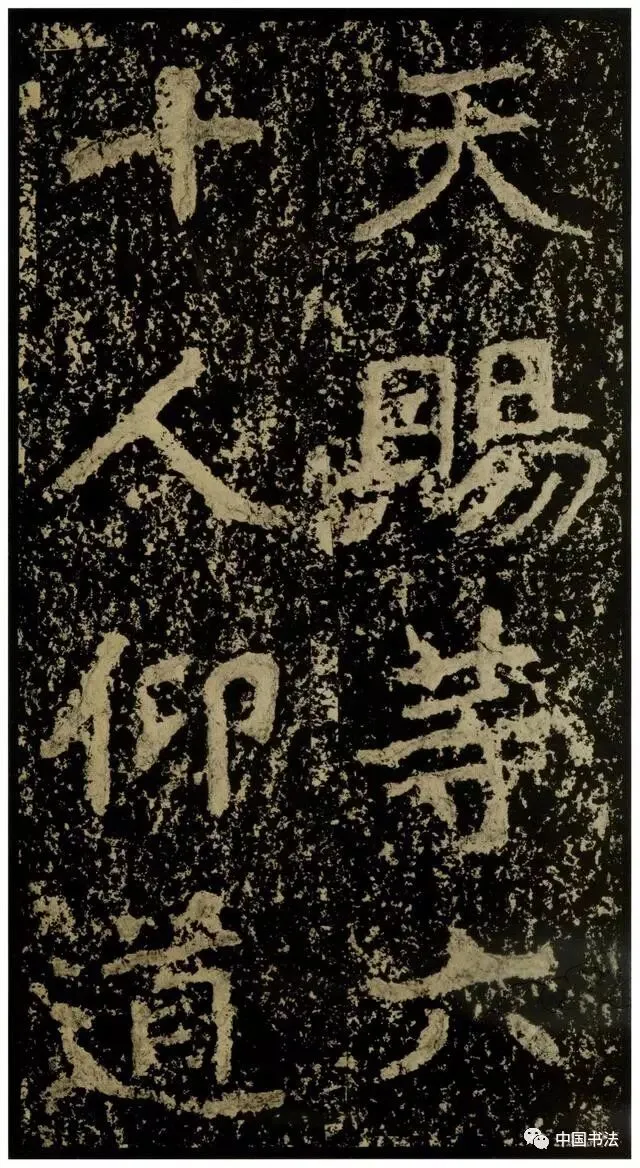 天賜等六
十人仰道
中国书法